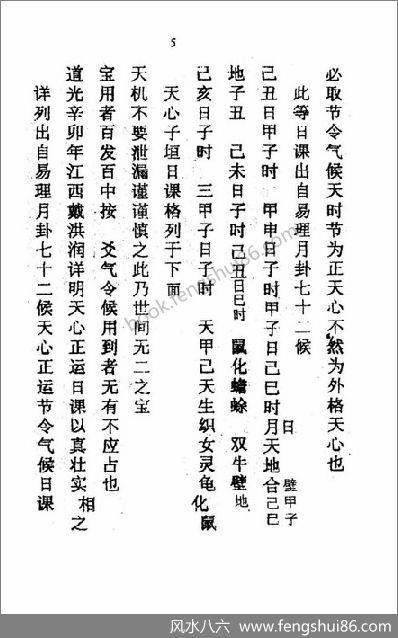 5
必取节令气候天时节为正天心不然为外格天心也
此等日课出自易理月卦七十二候
己丑日甲子时 甲申日子时甲子日己巳时日月天地合璧甲子己巳
地子丑 己未日子时己丑日巳时 鼠化蟾蜍 双牛璧地
己亥日子时 三甲子日子时 天甲己天生织女灵龟化鼠
天心子垣日课格列于下面
天机不要泄漏谨谨慎之此乃世间无二之宝
宝用者百发百中按 爻气令候用到者无有不应占也
道光辛卯年江西戴洪润详明天心正运日课以真壮实相之
详列出自易理月卦七十二候天心正运节令气候日课
book.fengshui86.com
风水八六 www.fengshui86.com